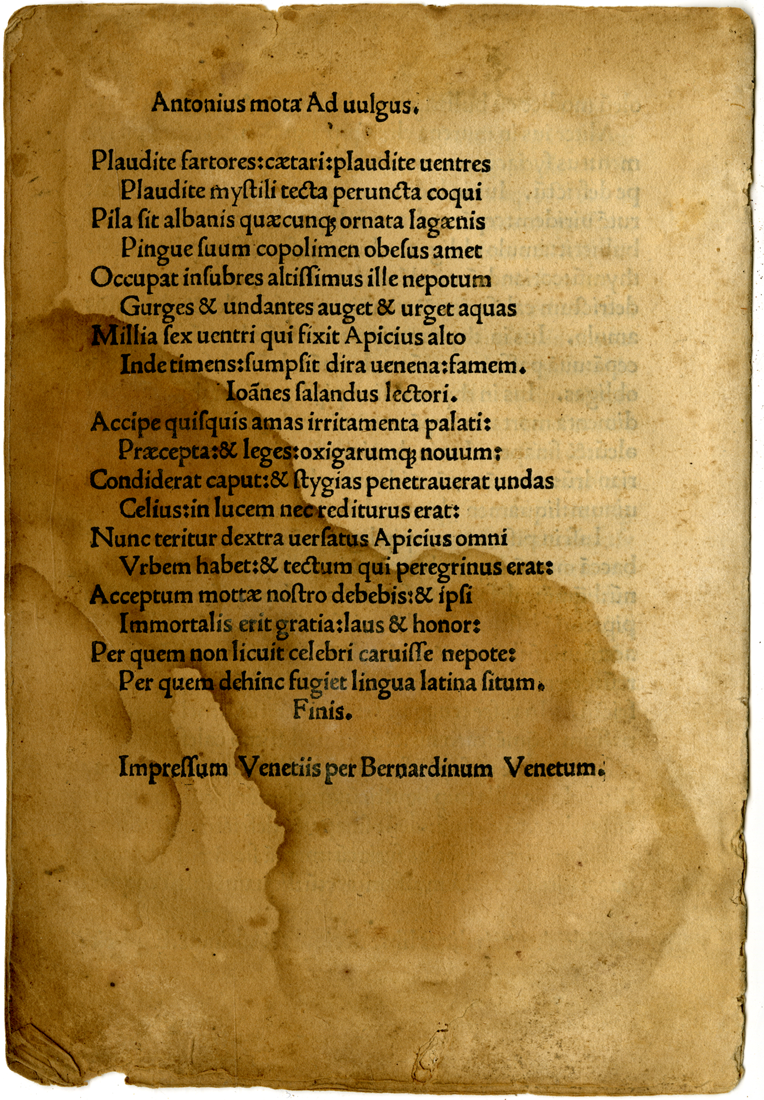 Antonius mota Ad uulgus.
Plaudite ſartores:cætari:plaudite uentres
Plaudite myſtili tecta peruncta coqui
Pila ſit albanis quæcunꝗ ornata lagænis
Pingue ſuum copolimen obeſus amet
Occupat inſubres altiſſimus ille nepotum
Gurges & undantes auget & urget aquas
Millia ſex uentri qui fixit Apicius alto
Inde timens:ſumpſit dira uenena:famem.
Ioānes ſalandus lectori.
Accipe quiſquis amas irritamenta palati:
Præcepta:& leges:oxigarumꝗ nouum:
Condiderat caput:& ſtygias penetrauerat undas
Celius:in lucem nec rediturus erat:
Nunc teritur dextra uerſatus Apicius omni
Vrbem habet:& tectum qui peregrinus erat:
Acceptum mottæ noſtro debebis:& ipſi
Immortalis erit gratia:laus & honor:
Per quem non licuit celebri caruiſſe nepote:
Per quem dehinc fugiet lingua latina ſitum.
Finis.
Impreſſum Venetiis per Bernardinum Venetum.